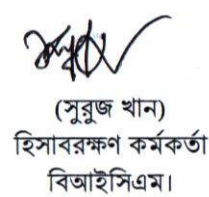 (সুরুজ খান)
হিসাবরক্ষণ কর্মকর্তা
বিআইসিএম।